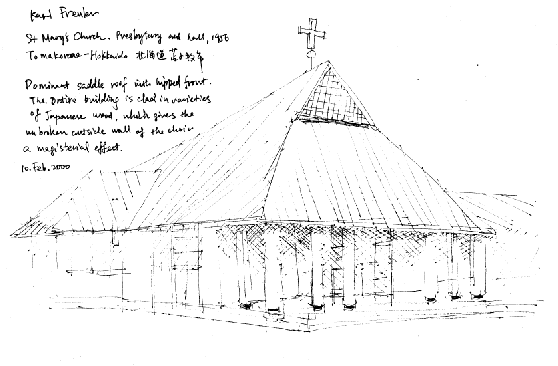 Karl Freuler
St Mary's Church. Presbytery and hall, 1956
Tomakomai - Hokkaido 北海道 苫小牧市
Dominant saddle roof with hipped front.
The Entire building is clad in varieties
of Japanese wood, which gives the
unbroken outside wall of the choir
a magisterial effect.
10. Feb. 2000